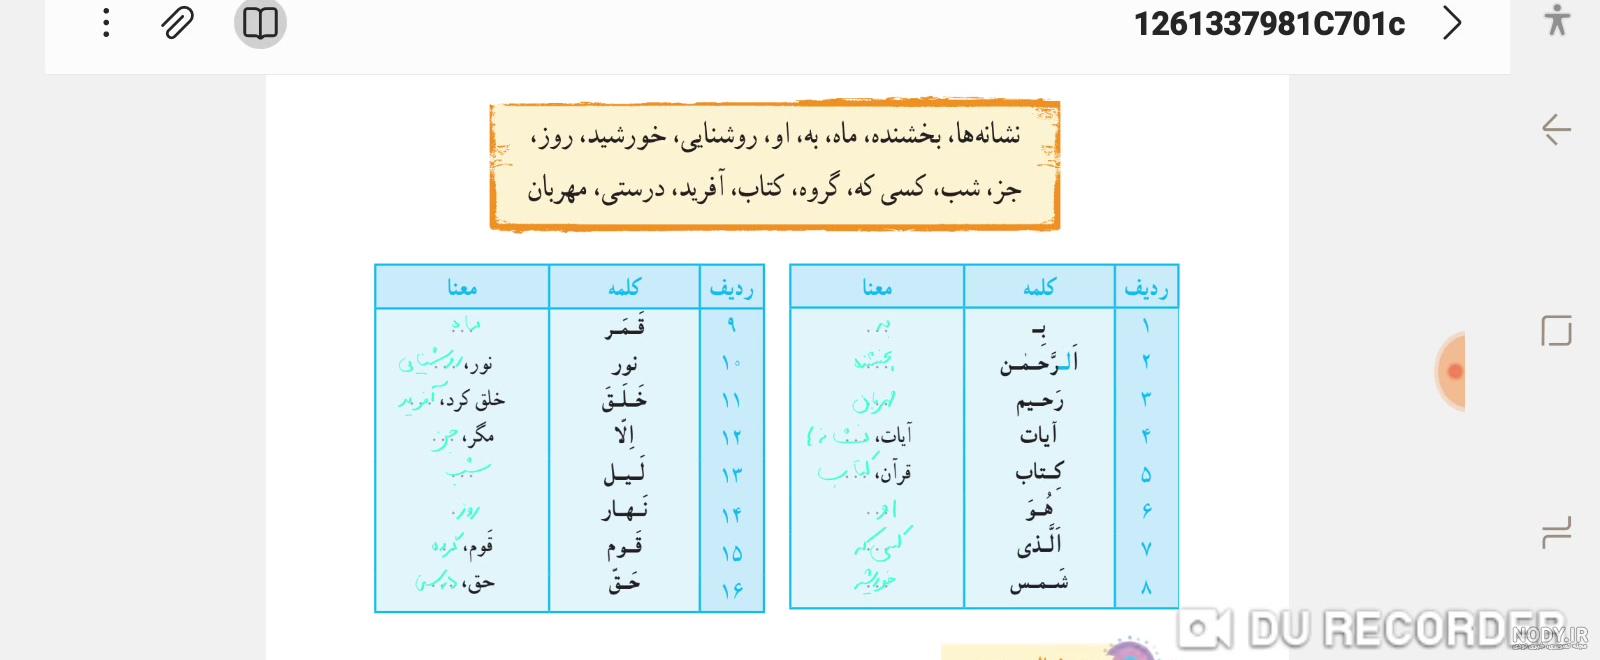 1261337981C701c
نشانه‌ها، بخشنده، ماه، به، او، روشنایی، خورشید، روز،
جز، شب، کسی که، گروه، کتاب، آفرید، درستی، مهربان
ردیف کلمه معنا
۱ بِـ به
۲ اَلـرَّحـمٰـن بخشنده
۳ رَحـیم مهربان
۴ آیات آیات، نشانه‌ها
۵ کِـتاب قرآن، کتاب
۶ هُـوَ او
۷ اَلَّـذی کسی که
۸ شَـمـس خورشید
ردیف کلمه معنا
۹ قَـمَـر ماه
۱۰ نور نور، روشنایی
۱۱ خَـلَـقَ خلق کرد، آفرید
۱۲ اِلّا مگر، جز
۱۳ لَـیـل شب
۱۴ نَـهـار روز
۱۵ قَـوم قَوم، گروه
۱۶ حَـقّ حق، درستی
DU RECORDER
NODY.IR